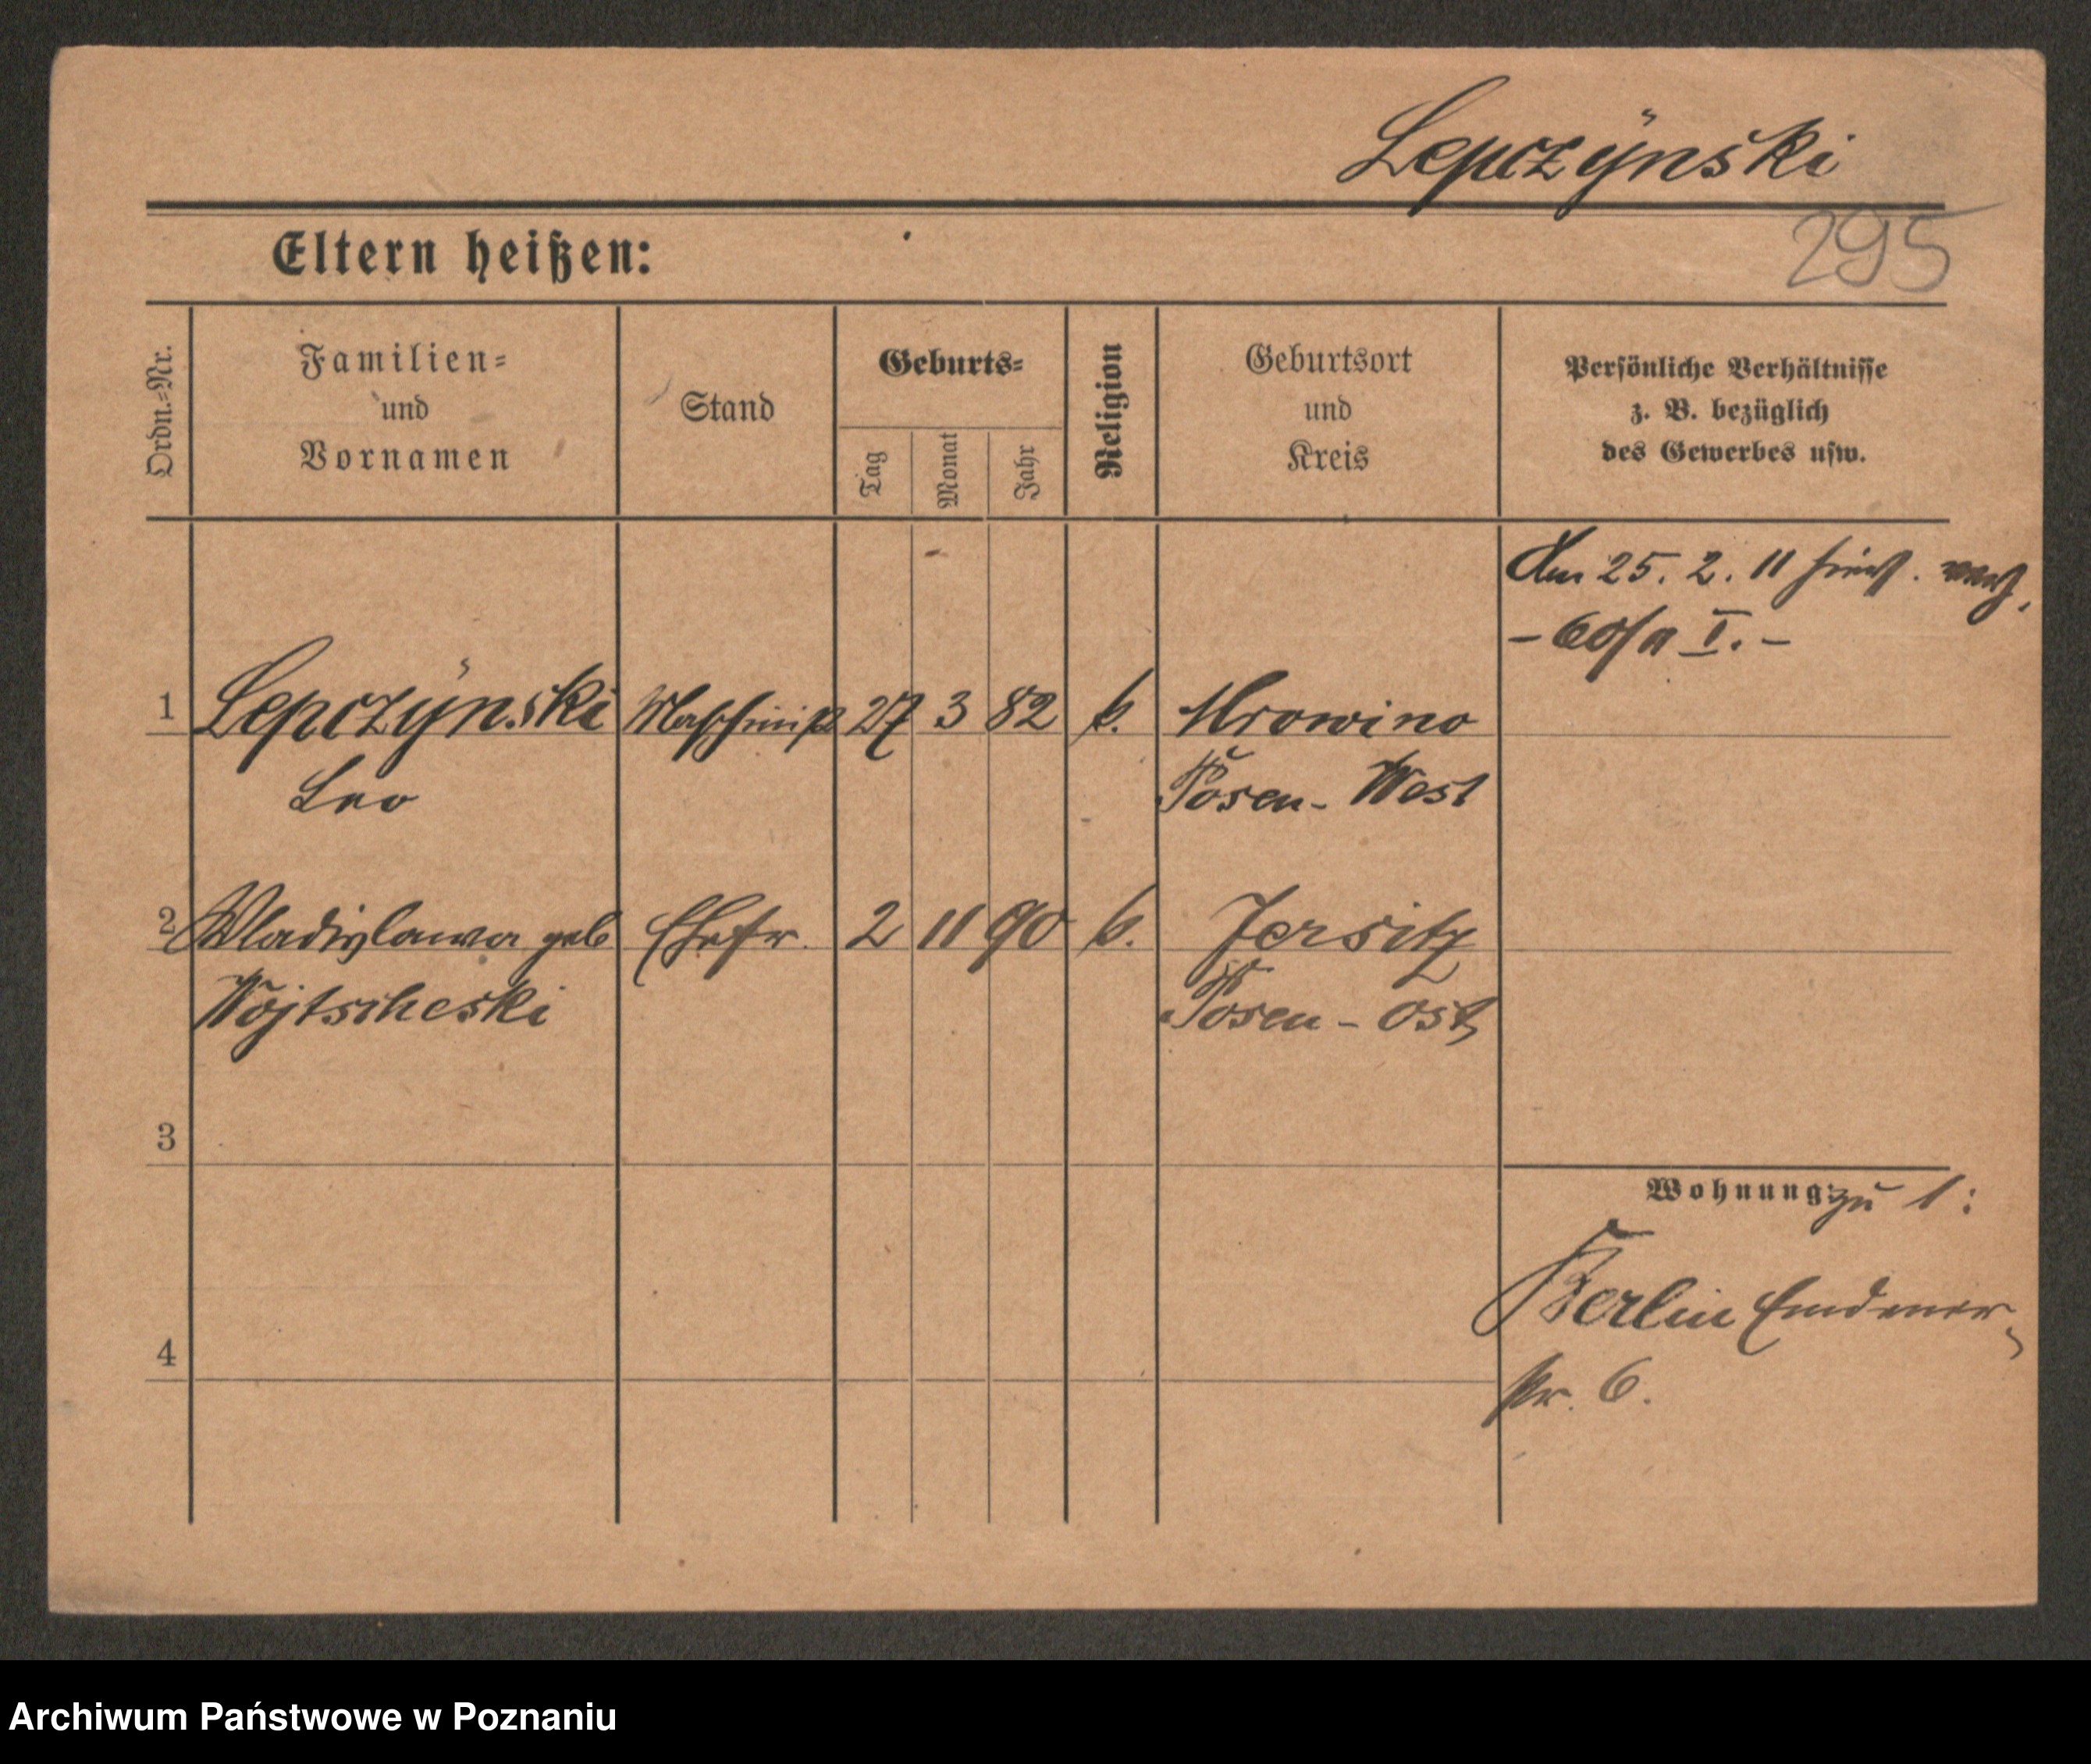 Lepczÿnski
295
Eltern heißen:
Ordn.-Nr.
Familien-
und
Vornamen
Stand
Geburts-
Tag
Monat
Jahr
Religion
Geburtsort
und
Kreis
Persönliche Verhältnisse
z. B. bezüglich
des Gewerbes usw.
Am 25. 2. 11
1 Lepczÿnski Maschinist 27 3 82 k. Mrowino
Leo Posen-West
2 Wladislawa geb Ehefr. 2 11 90 k. Jersitz
Wojtscheski Posen-Ost
3
Wohnung zu 1:
Berlin Emdener
4
str. 6.
Archiwum Państwowe w Poznaniu